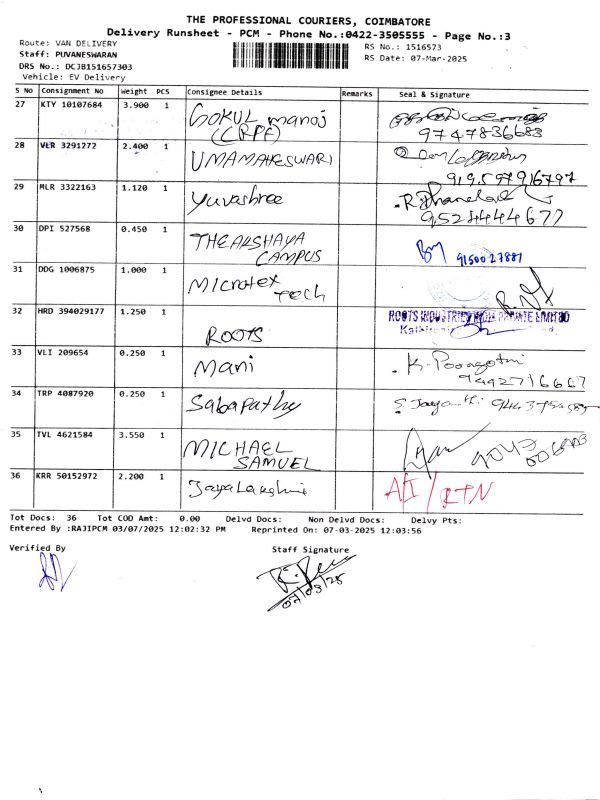 THE PROFESSIONAL COURIERS, COIMBATORE
Delivery Runsheet - PCM - Phone No.:0422-3505555 - Page No.:3
Route: VAN DELIVERY
RS No.: 1516573
Staff: PUVANESWARAN
RS Date: 07-Mar-2025
DRS No.: DCJB151657303
Vehicle: EV Delivery
S No Consignment No Weight PCS Consignee Details Remarks Seal & Signature
27 KTY 10107684 3.900 1 GOKUL manoj
(CRPF) 9747836683
28 VLR 3291272 2.400 1 UMAMAHESWARI
919597916797
29 MLR 3322163 1.120 1 Yuvashree
9524444677
30 DPI 527568 0.450 1 THEAKSHAYA
CAMPUS 9150027881
31 DDG 1006875 1.000 1 Microtex
Tech
32 HRD 394029177 1.250 1 ROOTS ROOTS INDUSTRIES INDIA PRIVATE LIMITED
33 VLI 209654 0.250 1 Mani K. Poongotni
9442716667
34 TRP 4087920 0.250 1 Sabapathy S. Jayanthi
35 TVL 4621584 3.550 1 MICHAEL
SAMUEL
36 KRR 50152972 2.200 1 Jayalakshmi A/I / RTN
Tot Docs: 36 Tot COD Amt: 0.00 Delvd Docs: Non Delvd Docs: Delvy Pts:
Entered By :RAJIPCM 03/07/2025 12:02:32 PM Reprinted On: 07-03-2025 12:03:56
Verified By Staff Signature
07/03/25